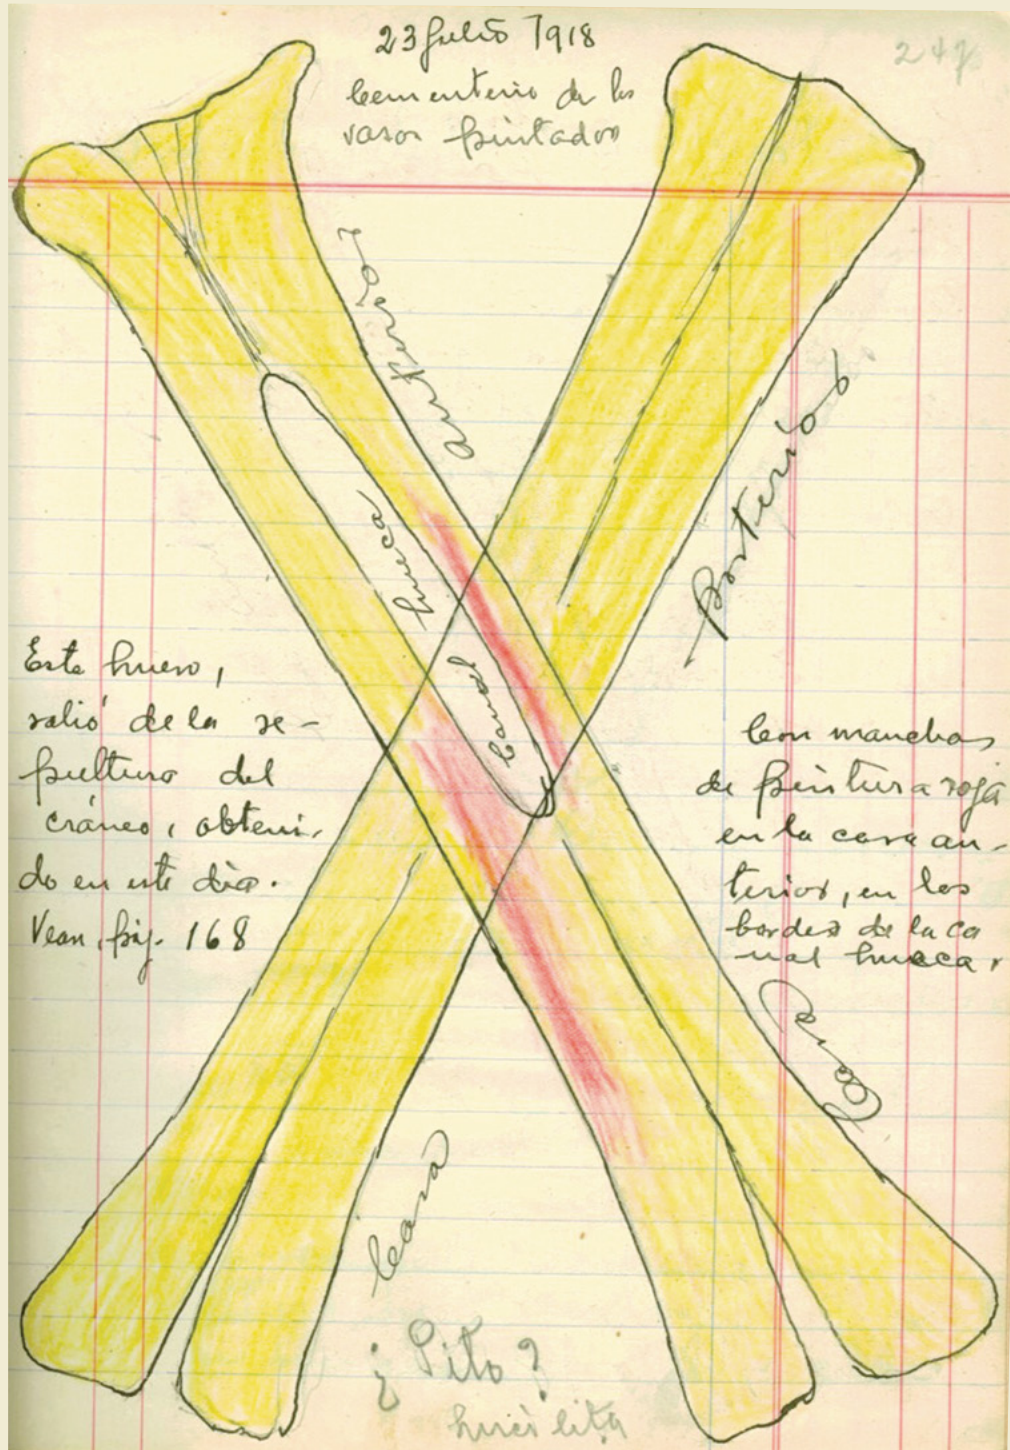 23 Julio 1918
Cementerio de los
vasos pintados
247
anterior
posterior
hueca
Canal
Este hueso,
salió de la se-
pultura del
cráneo, obteni-
do en este día.
Vean, pág. 168
Con manchas
de pintura roja
en la cara an-
terior, en los
bordes de la ca
nal hueca.
Cara
Cara
¿Pito?